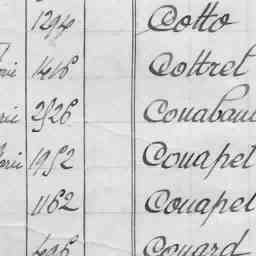 1294 Cotto
rie 1416 Cottret
rie 2526 Couabau
rie 1952 Couapel
1162 Couapel
496 Couard